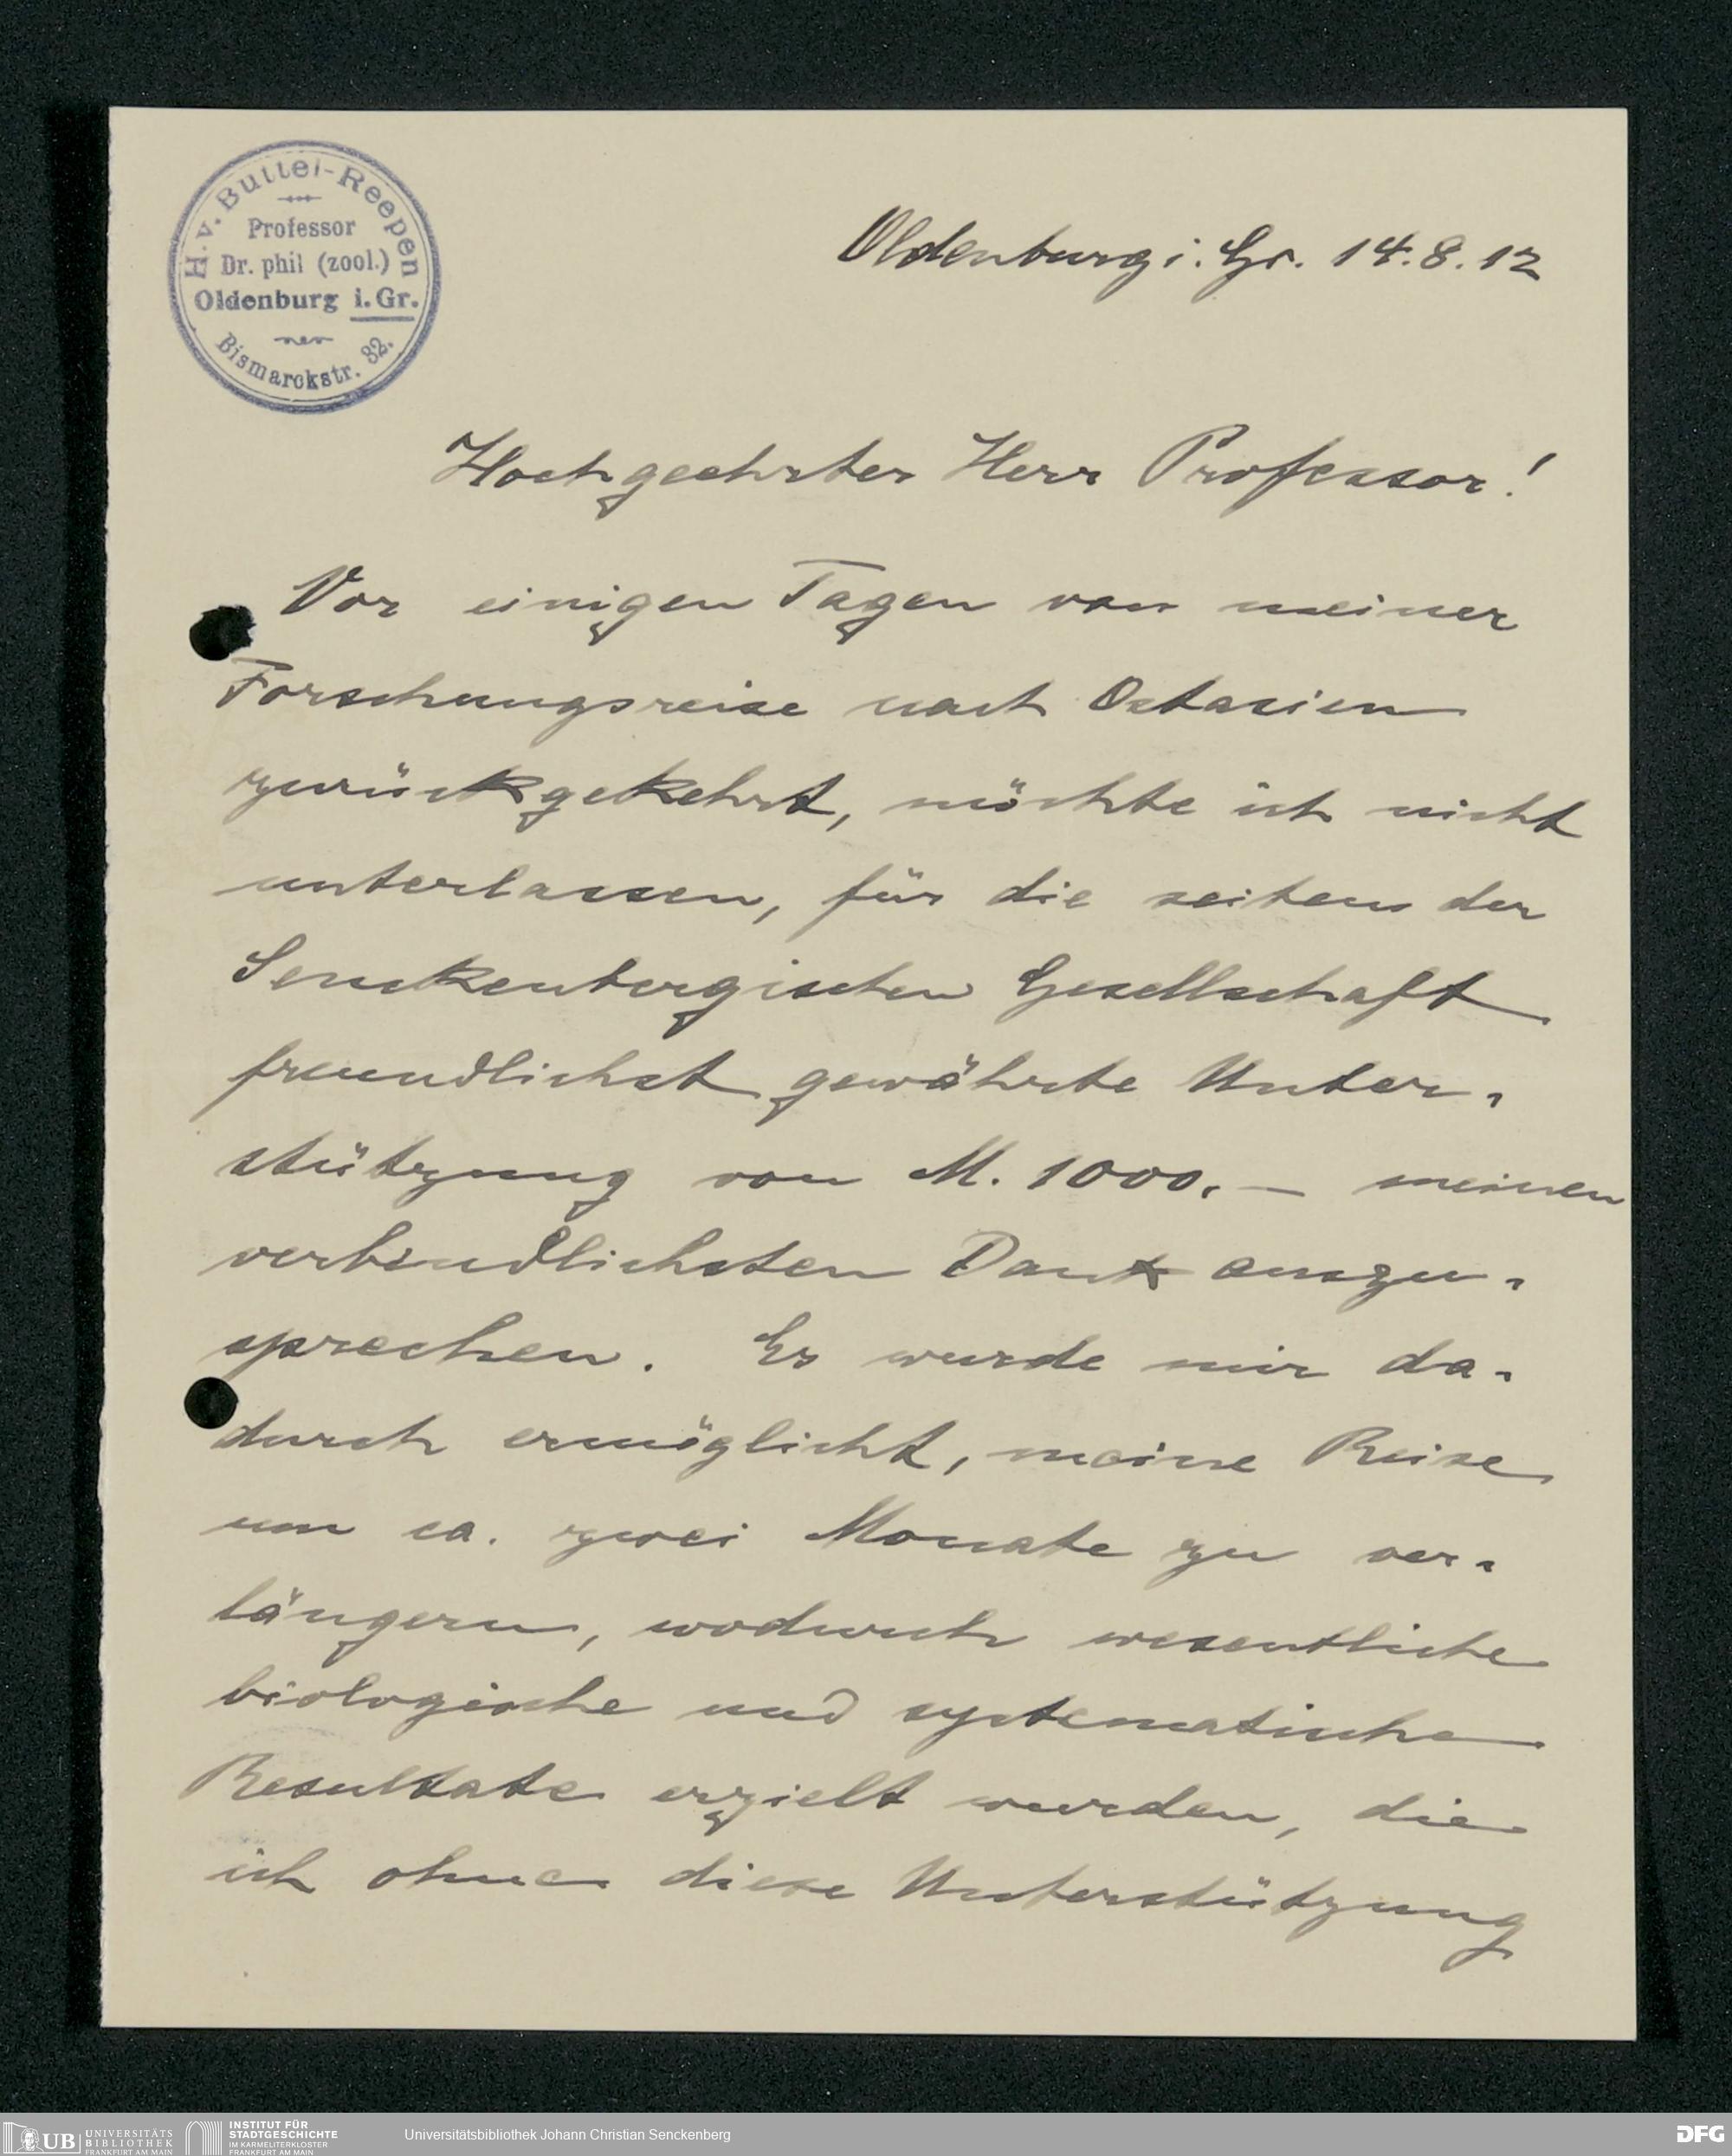 H. v. Buttel-Reepen
Professor
Dr. phil (zool.)
Oldenburg i. Gr.
Bismarckstr. 32.
Oldenburg i. Gr. 14.8.12
Hochgeehrter Herr Professor!
Vor einigen Tagen von meiner
Forschungsreise nach Ostasien
zurückgekehrt, möchte ich nicht
unterlassen, für die seitens der
Senckenbergischen Gesellschaft
freundlichst gewährte Unter-
stützung von M. 1000.— meinen
verbindlichsten Dank auszu-
sprechen. Es wurde mir da-
durch ermöglicht, meine Reise
um ca. zwei Monate zu ver-
längern, wodurch wesentliche
biologische und systematische
Resultate erzielt wurden, die
ich ohne diese Unterstützung
UB UNIVERSITÄTS
BIBLIOTHEK
FRANKFURT AM MAIN
INSTITUT FÜR
STADTGESCHICHTE
IM KARMELITERKLOSTER
FRANKFURT AM MAIN
Universitätsbibliothek Johann Christian Senckenberg
DFG